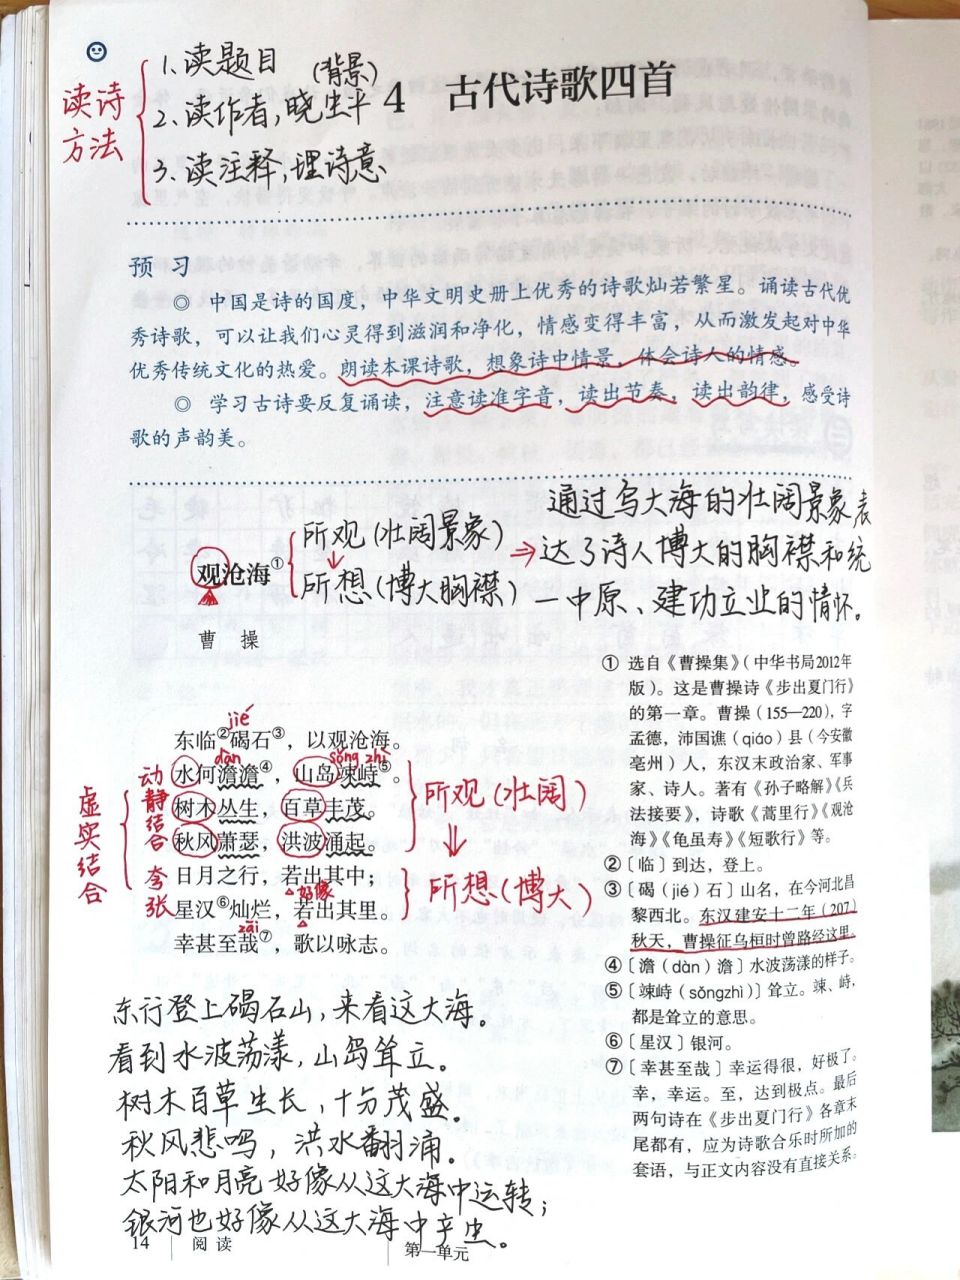 读诗
方法
1.读题目
(背景)
2.读作者,晓生平
3.读注释,理诗意
4 古代诗歌四首
预 习
◎ 中国是诗的国度，中华文明史册上优秀的诗歌灿若繁星。诵读古代优
秀诗歌，可以让我们心灵得到滋润和净化，情感变得丰富，从而激发起对中华
优秀传统文化的热爱。朗读本课诗歌，想象诗中情景，体会诗人的情感。
◎ 学习古诗要反复诵读，注意读准字音，读出节奏，读出韵律，感受诗
歌的声韵美。
观沧海①
曹 操
所观(壮阔景象)
所想(博大胸襟)
通过写大海的壮阔景象表
达了诗人博大的胸襟和统
一中原、建功立业的情怀。
jié
东临②碣石③，以观沧海。
dàn sǒng zhì
水何澹澹④，山岛竦峙⑤。
树木丛生，百草丰茂。
秋风萧瑟，洪波涌起。
日月之行，若出其中；
好像
星汉⑥灿烂，若出其里。
zāi
幸甚至哉⑦，歌以咏志。
虚实结合
动静结合
夸张
所观(壮阔)
所想(博大)
东行登上碣石山,来看这大海。
看到水波荡漾,山岛耸立。
树木百草生长,十分茂盛。
秋风悲鸣,洪水翻涌。
太阳和月亮好像从这大海中运转;
银河也好像从这大海中产生。
① 选自《曹操集》（中华书局2012年
版）。这是曹操诗《步出夏门行》
的第一章。曹操（155—220），字
孟德，沛国谯（qiáo）县（今安徽
亳州）人，东汉末政治家、军事
家、诗人。著有《孙子略解》《兵
法接要》，诗歌《蒿里行》《观沧
海》《龟虽寿》《短歌行》等。
②〔临〕到达，登上。
③〔碣（jié）石〕山名，在今河北昌
黎西北。东汉建安十二年（207）
秋天，曹操征乌桓时曾路经这里。
④〔澹（dàn）澹〕水波荡漾的样子。
⑤〔竦峙（sǒngzhì）〕耸立。竦、峙，
都是耸立的意思。
⑥〔星汉〕银河。
⑦〔幸甚至哉〕幸运得很，好极了。
幸，幸运。至，达到极点。最后
两句诗在《步出夏门行》各章末
尾都有，应为诗歌合乐时所加的
套语，与正文内容没有直接关系。
14 阅 读
第一单元